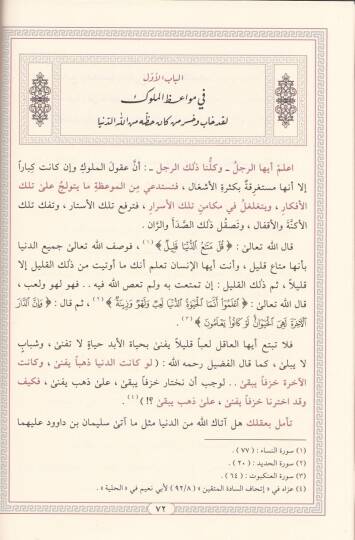 الباب الأول
في مواعظ الملوك
لقد خاب وخسر من كان حظّه من الله الدّنيا
اعلمْ أيها الرجلُ ـ وكلُّنا ذلك الرجل ـ : أنَّ عقول الملوك وإن كانت كِباراً
إلا أنها مستغرِقةٌ بكثرة الأشغال ، فتستدعي مِن الموعظةِ ما يتولَّجُ علىٰ تلك
الأفكارِ ، ويتغلغلُ في مكامنِ تلك الأسرارِ ، فترفع تلك الأستار ، وتفك تلك
الأكنَّة والأقفال ، وتصقُل ذلك الصَّدَأ والرَّان .
قال الله تعالىٰ : ﴿ قُلْ مَتَٰعُ ٱلدُّنْيَا قَلِيلٌ ﴾(١) ، فوصف الله تعالىٰ جميع الدنيا
بأنها متاع قليل ، وأنت أيها الإنسان تعلم أنك ما أوتيت من ذلك القليل إلا
قليلاً ، ثم ذلك القليل : إن تمتعت به ولم تعص الله فيه .. فهو لهو ولعب ،
قال الله تعالىٰ : ﴿ ٱعْلَمُوٓا۟ أَنَّمَا ٱلْحَيَوٰةُ ٱلدُّنْيَا لَعِبٌ وَلَهْوٌ وَزِينَةٌ ﴾(٢) ، ثم قال : ﴿ وَإِنَّ ٱلدَّارَ
ٱلْآخِرَةَ لَهِىَ ٱلْحَيَوَانُ لَوْ كَانُوا۟ يَعْلَمُونَ ﴾(٣) .
فلا تبتع أيها العاقل لعباً قليلاً يفنىٰ بحياة الأبد حياةٍ لا تفنىٰ ، وشبابٍ
لا يبلىٰ ، كما قال الفضيل رحمه الله : ( لو كانت الدنيا ذهباً يفنىٰ ، وكانت
الآخرة خزفاً يبقىٰ .. لوجب أن نختار خزفاً يبقىٰ ، علىٰ ذهب يفنىٰ ، فكيف
وقد اخترنا خزفاً يفنىٰ ، علىٰ ذهب يبقىٰ ؟! )(٤) .
تأمل بعقلك هل آتاك الله من الدنيا مثل ما آتىٰ سليمان بن داوود عليهما
(١) سورة النساء : ( ٧٧ ) .
(٢) سورة الحديد : ( ٢٠ ) .
(٣) سورة العنكبوت : ( ٦٤ ) .
(٤) عزاه في « إتحاف السادة المتقين » ( ٩٢/٨ ) لأبي نعيم في « الحلية » .
٧٢